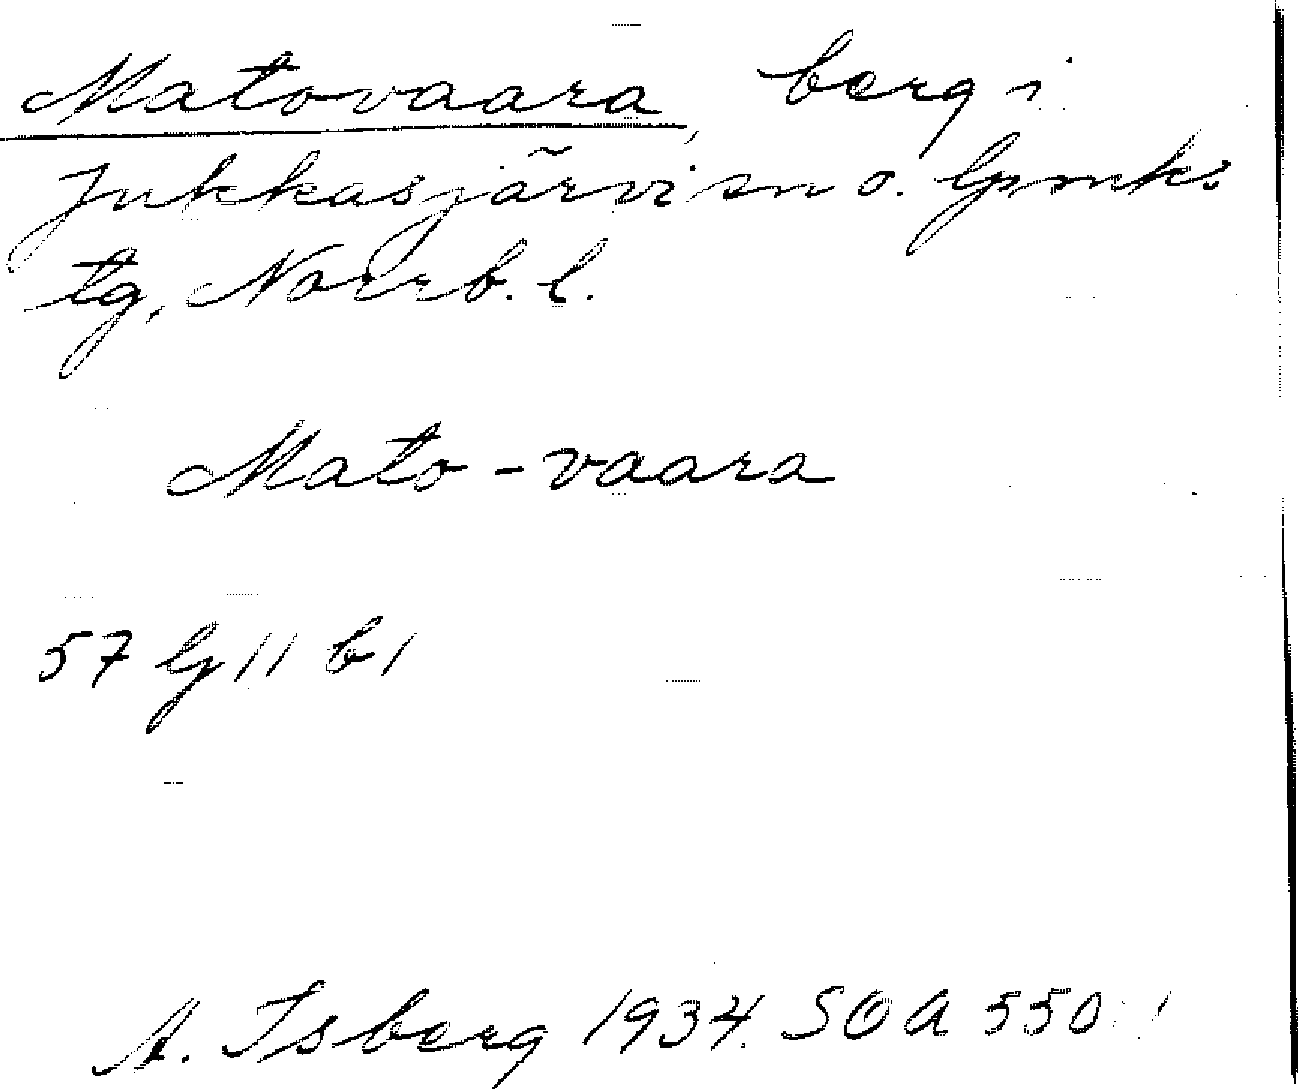 Matovaara, berg i
Jukkasjärvi sn o. Gpmks
tg, Norrb. l.
Mato-vaara
57 G 11 b 1
A. Isberg 1934. SOA 550:1